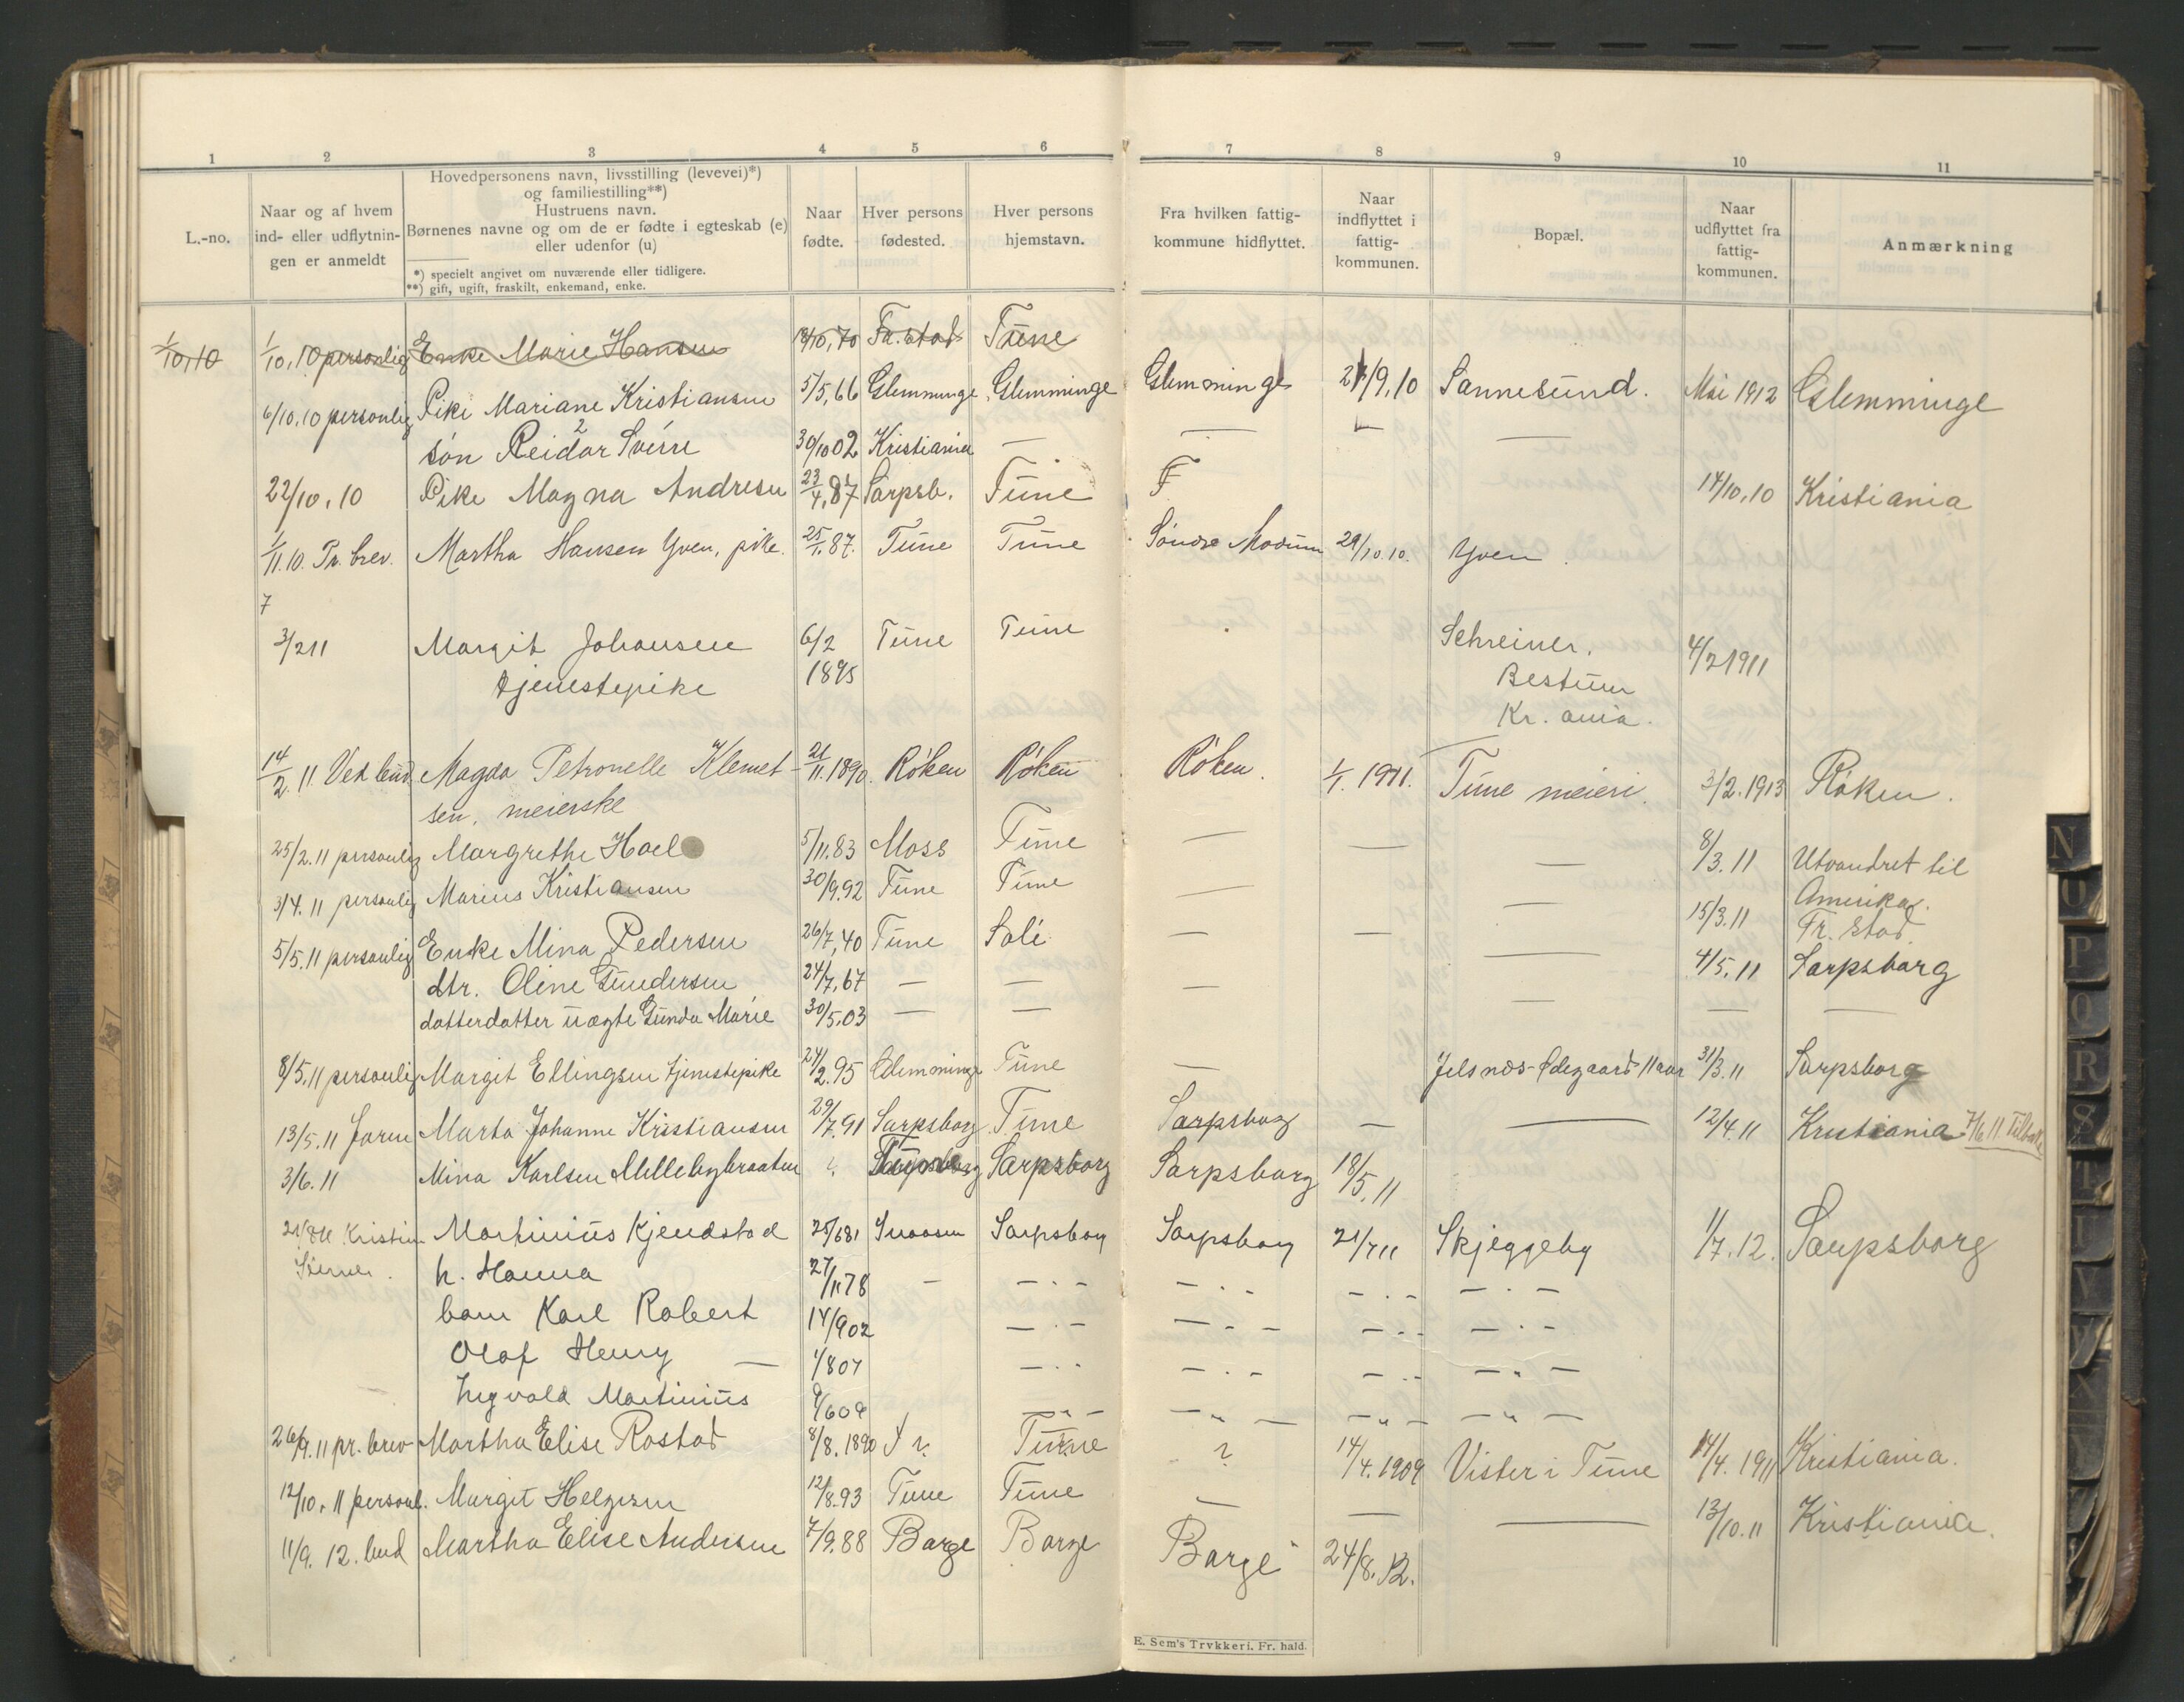 1 2 3 4 5 6 7 8 9 10 11
L.-no.
Naar og af hvem
ind- eller udflytnin-
gen er anmeldt
Hovedpersonens navn, livsstilling (levevei)*)
og familiestilling**)
Hustruens navn.
Børnenes navne og om de er fødte i egteskab (e)
eller udenfor (u)
*) specielt angivet om nuværende eller tidligere.
**) gift, ugift, fraskilt, enkemand, enke.
Naar
fødte.
Hver persons
fødested.
Hver persons
hjemstavn.
Fra hvilken fattig-
kommune hidflyttet.
Naar
indflyttet i
fattig-
kommunen.
Bopæl.
Naar
udflyttet fra
fattig-
kommunen.
Anmærkning
1/10,10 1/10,10 personlig Enke Marie Hansen 18/10,70 Fr.stad Tune
6/10.10 personlig Pike Mariane Kristiansen 5/5,66 Glemminge Glemminge Glemminge 21/9,10 Sannesund. Mai 1912 Glemminge
søn Reidar Sverre 30/10 02 Kristiania — — — —
22/10,10 Pike Magna Andresen 23/4,87 Sarpsb. Tune F 14/10,10 Kristiania
1/11.10. Pr. brev. Martha Hansen Yven, pike. 25/1.87. Tune Tune Søndre Modum 29/10.10. Yven.
7
3/2 11 Margit Johansen 6/2 Tune Tune Schreiner, 4/2 1911
tjenestepike 1895 Bestum
Kr. ania.
14/2.11 Ved bud. Magda Petronelle Klemet- 21/11.1890. Røken Røken Røken. 1/1.1911. Tune meieri. 3/2.1913 Røken.
sen, meierske
25/2.11 personlig Margrethe Hoel 5/11.83 Moss Tune — — — 8/3.11 Utvandret til
Amerika.
3/4.11 personlig Marius Kristiansen 30/9.92 Tune Tune — — — 15/3.11 Fr. stad.
5/5.11 personlig Enke Mina Pedersen 26/7,40 Tune Soli — — — 4/5.11 Sarpsborg
dtr. Oline Gundersen 24/7,67 — — — — — —
datterdatter uægte Gunda Marie 30/5.03 — —
8/5.11 personlig Margit Ellingsen tjenestepike 24/2.95 Glemminge Tune — Jelsnæs-Ødegaard 11 aar 31/3.11 Sarpsborg
13/5.11 Marta Johanne Kristiansen 29/7.91 Sarpsborg Tune Sarpsborg — — 12/4.11 Kristiania 7/6 11 Tilbake
3/6.11 Mina Karlsen Millebybraaten Tune Sarpsborg Sarpsborg 18/5.11
Kristian Martinius Kjendstad 25/6 81 Snaasen Sarpsborg Sarpsborg 21/7 11 Skjeggeby 1/7.12. Sarpsborg
h. Hanna 27/11 78 — —.— —.- —.— —.—
barn Karl Robert 14/9 02 —.— —.- —.— —.—
Olaf Henry — 1/8 07 —.— —.- —.— —.—
Ingvald Martinius 9/6 09 —„— —„— —„— —„—
26/9.11 pr. brev Martha Elise Rostad 8/8.1890 ? Tune ? 14/4.1909 Vister i Tune 14/4.1911 Kristiania.
12/10.11 personl. Margit Helgesen 12/8.93 Tune Tune — — — 13/10.11 Kristiania.
11/9.12. bud Martha Elise Andersen 7/9.88 Borge Borge Borge 24/8.12.
E. Sem's Trykkeri. Fr. hald.
N
O
P
Q
R
S
T
U
V
X
Y